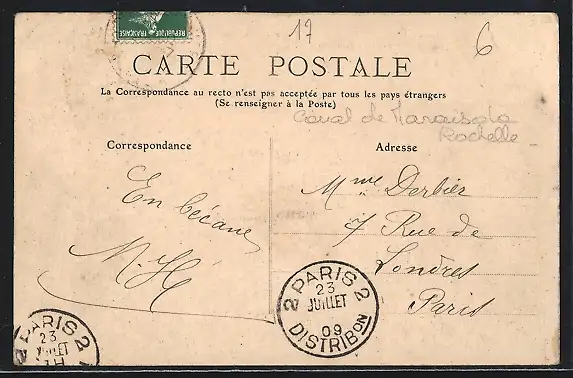 REPUBLIQUE FRANÇAISE
17
6
CARTE POSTALE
La Correspondance au recto n'est pas acceptée par tous les pays étrangers
(Se renseigner à la Poste)
Canal de Marais à la
Rochelle
Correspondance
Adresse
En bécane
M. H
Mme Derbier
7 Rue de
Londres
Paris
PARIS 2
23
JUILLET
2 PARIS 2
23
JUILLET
09
DISTRIBON